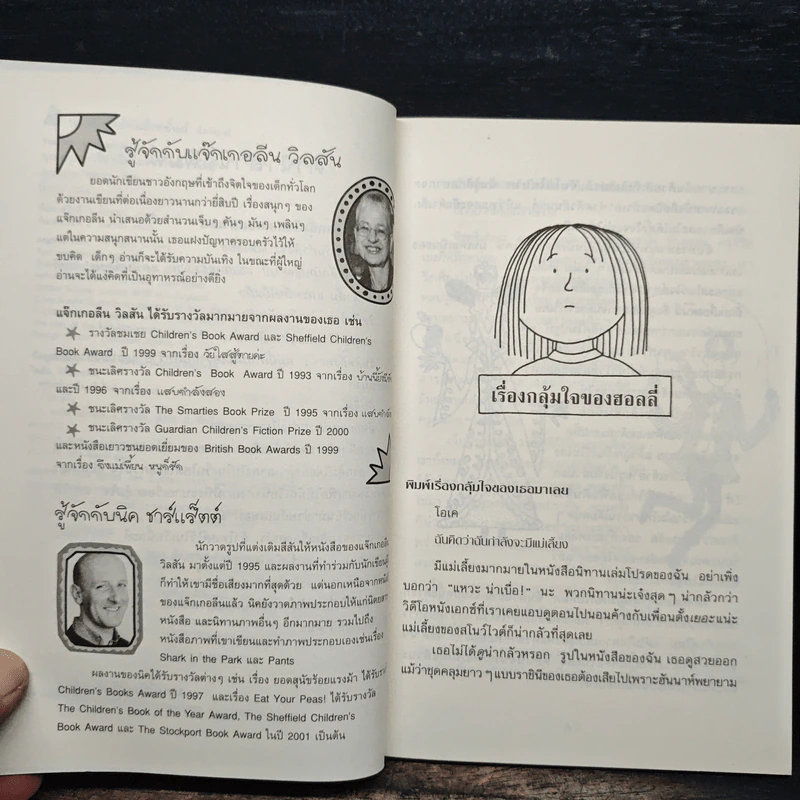 รู้จักกับแจ๊กเกอลีน วิลสัน
ยอดนักเขียนชาวอังกฤษที่เข้าถึงจิตใจของเด็กทั่วโลก
ด้วยงานเขียนที่ต่อเนื่องยาวนานกว่ายี่สิบปี เรื่องสนุกๆ ของ
แจ๊กเกอลีน นำเสนอด้วยสำนวนเจ็บๆ คันๆ มันๆ เพลินๆ
แต่ในความสนุกสนานนั้น เธอแฝงปัญหาครอบครัวไว้ให้
ขบคิด เด็กๆ อ่านก็จะได้รับความบันเทิง ในขณะที่ผู้ใหญ่
อ่านจะได้แง่คิดที่เป็นอุทาหรณ์อย่างดียิ่ง
แจ๊กเกอลีน วิลสัน ได้รับรางวัลมากมายจากผลงานของเธอ เช่น
รางวัลชมเชย Children's Book Award และ Sheffield Children's
Book Award ปี 1999 จากเรื่อง วัยใสสู้ตายค่ะ
ชนะเลิศรางวัล Children's Book Award ปี 1993 จากเรื่อง
และปี 1996 จากเรื่อง แสบกำลังสอง
ชนะเลิศรางวัล The Smarties Book Prize ปี 1995 จากเรื่อง
ชนะเลิศรางวัล Guardian Children's Fiction Prize ปี 2000
และหนังสือเยาวชนยอดเยี่ยมของ British Book Awards ปี 1999
จากเรื่อง ถึงแม่เพี้ยน หนูก็รัก
รู้จักกับนิค ชาร์แร็ตต์
นักวาดรูปที่แต่งเติมสีสันให้หนังสือของแจ๊กเกอลีน
วิลสัน มาตั้งแต่ปี 1995 และผลงานที่ทำร่วมกับนักเขียน
ก็ทำให้เขามีชื่อเสียงมากที่สุดด้วย แต่นอกเหนือจาก
ของแจ๊กเกอลีนแล้ว นิคยังวาดภาพประกอบให้แก่นิตยสาร
หนังสือ และนิทานภาพอื่นๆ อีกมากมาย รวมไปถึง
หนังสือภาพที่เขาเขียนและทำภาพประกอบเองเช่นเรื่อง
Shark in the Park และ Pants
ผลงานของนิคได้รับรางวัลต่างๆ เช่น เรื่อง ยอดสุนัขร้อยแรงม้า ได้รับ
Children's Books Award ปี 1997 และเรื่อง Eat Your Peas! ได้รับรางวัล
The Children's Book of the Year Award, The Sheffield Children's
Book Award และ The Stockport Book Award ในปี 2001 เป็นต้น
เรื่องกลุ้มใจของฮอลลี่
พิมพ์เรื่องกลุ้มใจของเธอมาเลย
โอเค
ฉันคิดว่าฉันกำลังจะมีแม่เลี้ยง
มีแม่เลี้ยงมากมายในหนังสือนิทานเล่มโปรดของฉัน อย่าเพิ่ง
บอกว่า "แหวะ น่าเบื่อ!" นะ พวกนิทานน่ะเจ๋งสุดๆ น่ากลัวกว่า
วิดีโอหนังเอกซ์ที่เราเคยแอบดูตอนไปนอนค้างกับเพื่อนตั้งเยอะแน่ะ
แม่เลี้ยงของสโนว์ไวต์ก็น่ากลัวที่สุดเลย
เธอไม่ได้ดูน่ากลัวหรอก รูปในหนังสือของฉัน เธอดูสวยออก
แม้ว่าชุดคลุมยาวๆ แบบราชินีของเธอต้องเสียไปเพราะฮันนาห์พยายาม